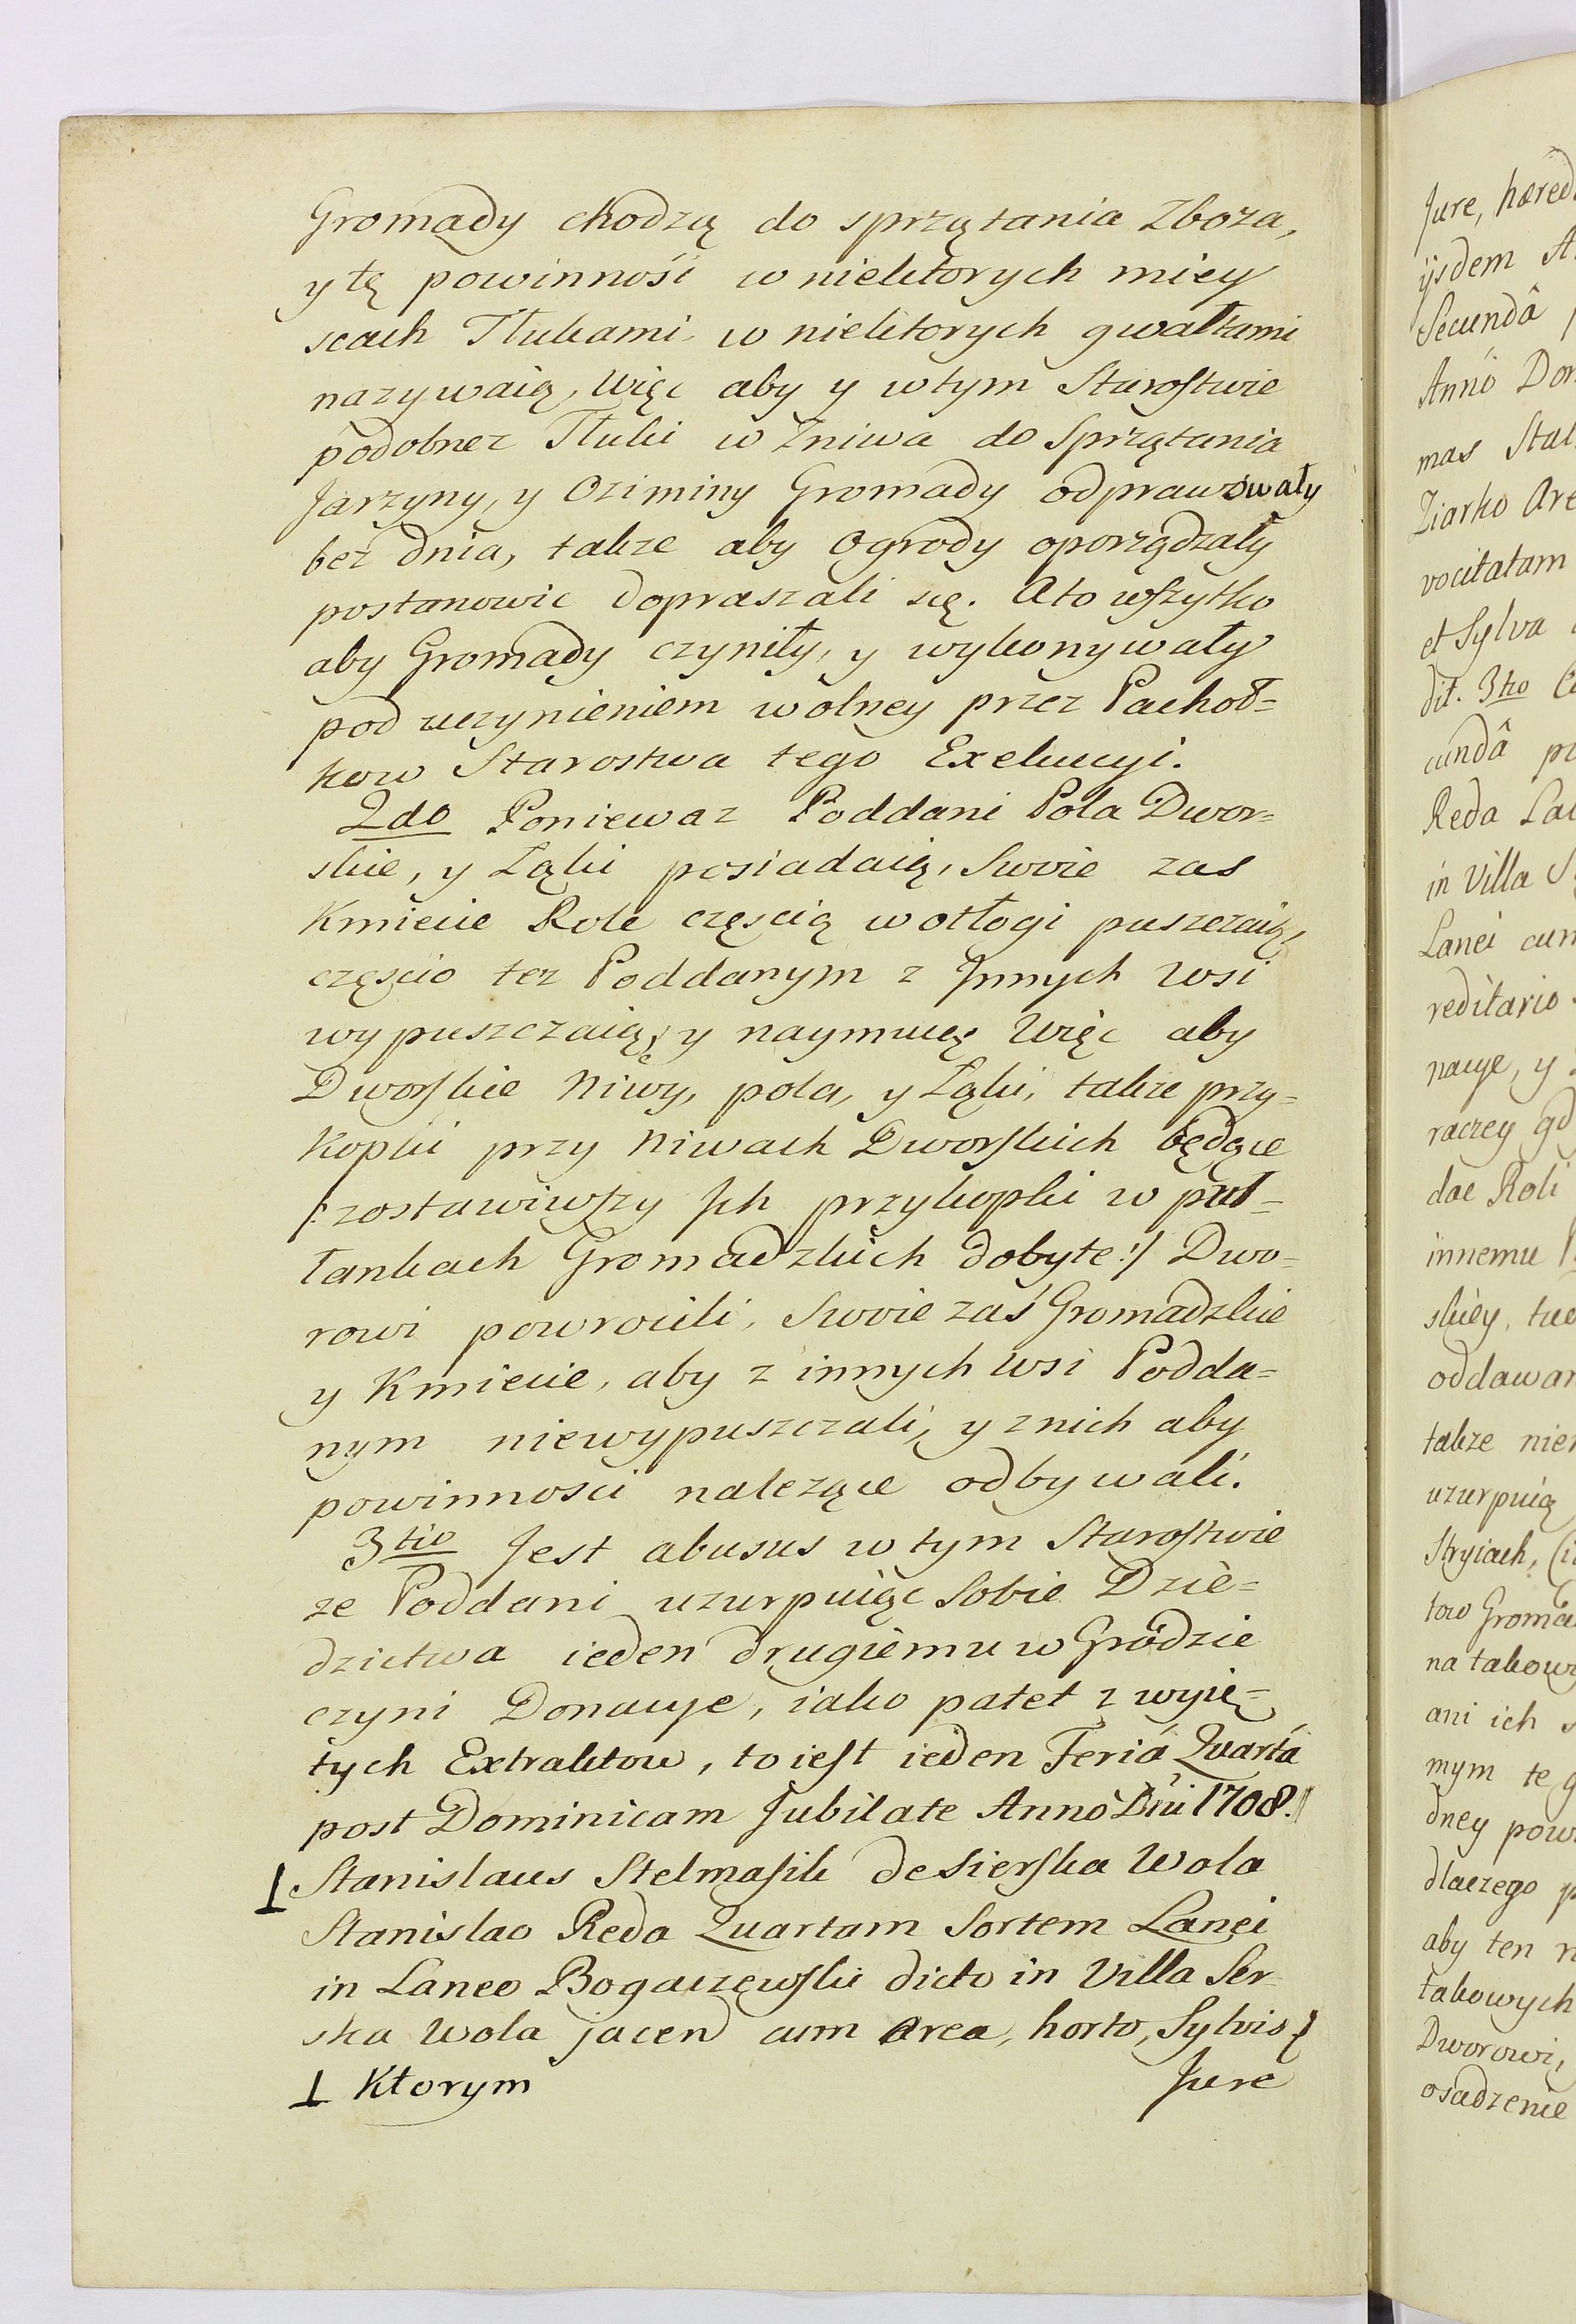 Gromady chodzą do sprzątania Zboza,
y tę powinność w niektorych miey
scach Tłukami w niektorych gwałtami
nazywaią, Więc aby y wtym Starostwie
podobnez Tłuki w Zniwa do Sprzątania
Jarzyny, y Oziminy Gromady odprawowały
bez dnia, takze aby Ogrody oporządzały
postanowic dopraszali się. Ato wszytko
aby Gromady czyniły, y wykonywały
pod uczynieniem wolney przez Pachoł=
kow Starostwa tego Exekucyi.
2do Poniewaz Poddani Pola Dwor=
skie, y Łąki posiadaią, Swoie zas
Kmiecie Role częscią w otłogi puszczaią,
częscio tez Poddanym z Jnnych Wsi
wypuszczaią, y naymuią Więc aby
Dworskie Niwy, pola, y Łąki, takze przy=
kopki przy Niwach Dworskich będące
/: zostawiwszy Jch przykopki w puł=
łankach Gromadzkich dobyte :/ Dwo=
rowi powrocili, Swoie zaś Gromadzkie
y Kmiecie, aby z innych Wsi Podda=
nym niewypuszczali, y znich aby
powinnosci nalezące odbywali.
3tio Jest abusus w tym Starostwie
ze Poddani uzurpuiąc Sobie Dzie=
dzictwa ieden drugiemu w Grodzie
czyni Donacye, iako patet z wyię=
tych Extraktow, to iest ieden Feriá Quartá
post Dominicam Jubilate Annó Dni 1708.
⊥ Stanislaus Stelmasik de Sierska Wola
Stanislao Reda Quartam Sortem Lanei
in Laneo Bogaczewski dicto in Villa Ser
ska Wola jacen cum Area, horto, Sylvis
⊥ Ktorym Jure
Jure, hæred
ijsdem A
Secundâ
Annó Dom
mas Stal
Ziarko Are
vocitatam
et Sylva
dit. 3tio
cundâ pr
Reda Lan
in Villa S
Lanei cum
reditario
nacye, y
raczey gd
dae Roli
innemu P
skiey, tu
oddawan
takze nie
uzurpuią
Stryiach,
tow Groma
na takow
ani ich s
mym te g
dney pow
dlaczego p
aby ten n
takowych
Dworowi,
osadzenie